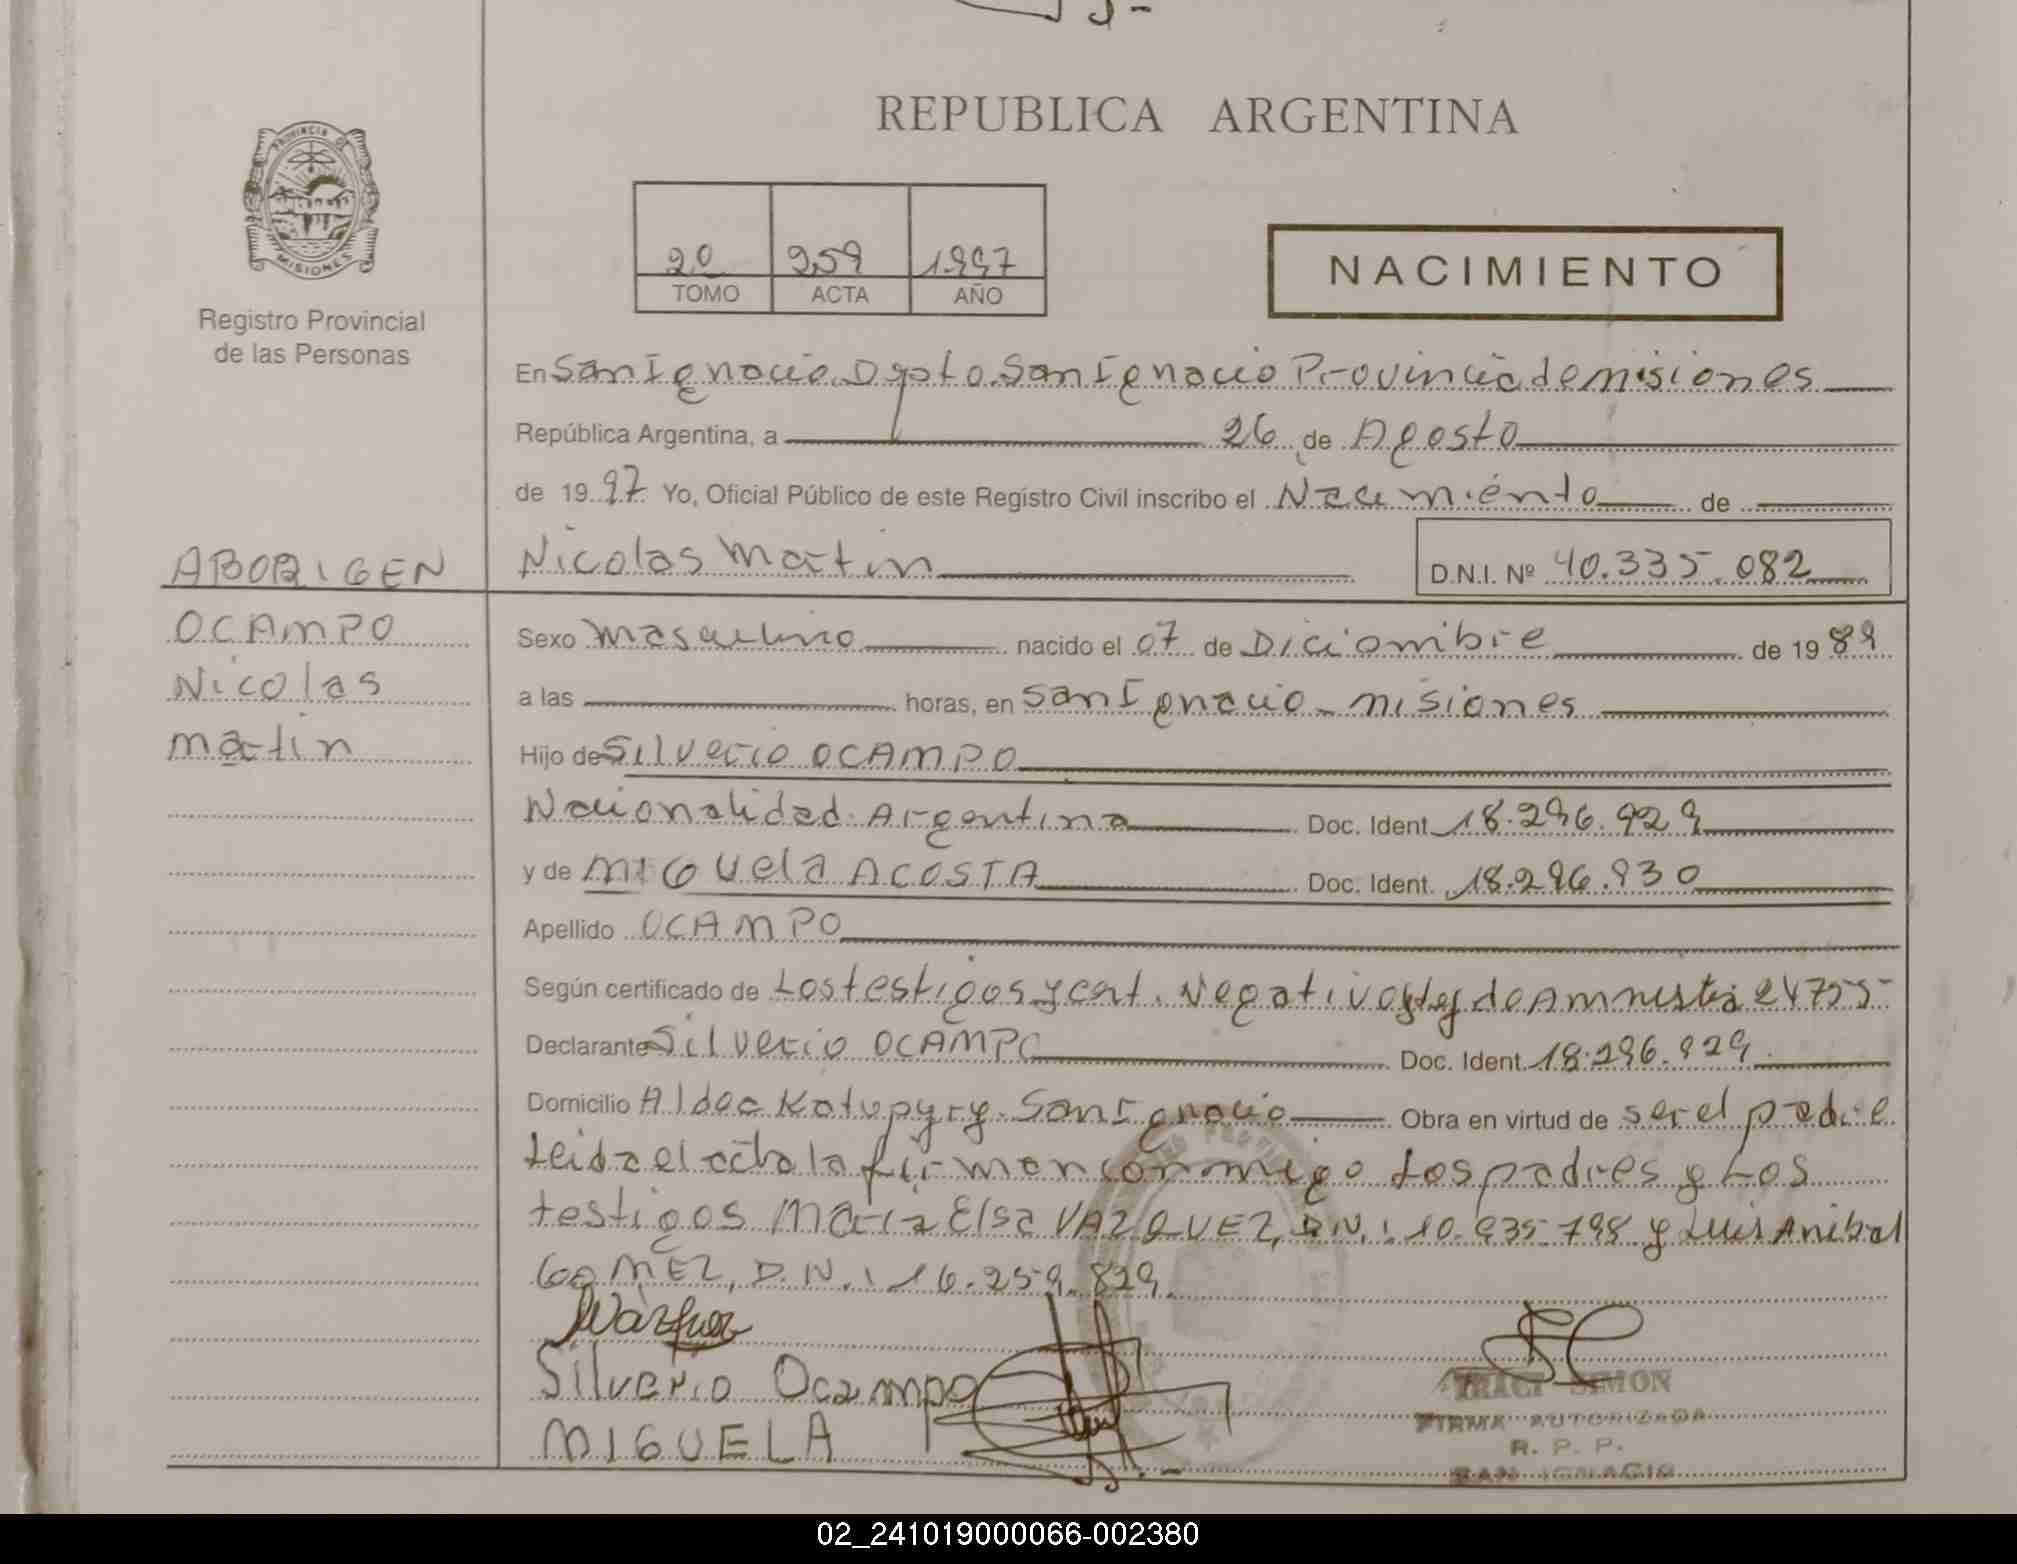 REPUBLICA ARGENTINA
PROVINCIA DE MISIONES
Registro Provincial
de las Personas
20 259 1997
TOMO ACTA AÑO
NACIMIENTO
En San Ignacio Dpto San Ignacio Provincia de misiones
República Argentina, a 26 de Agosto
de 1997 Yo, Oficial Público de este Registro Civil inscribo el Nacimiento de
ABORIGEN
Nicolas Martin D.N.I. Nº 40.335.082
OCAMPO
Nicolas
martin
Sexo masculino nacido el 07 de Diciembre de 1989
a las horas, en San Ignacio - misiones
Hijo de Silverio OCAMPO
Nacionalidad Argentina Doc. Ident 18.296.929
y de MIGuela ACOSTA Doc. Ident. 18.296.930
Apellido OCAMPO
Según certificado de Los testigos y cert. Negativo y ley de Amnistia 24755
Declarante Silverio OCAMPO Doc. Ident. 18.296.929
Domicilio Aldea Katupyry San Ignacio Obra en virtud de ser el padre
Leida el acta la firman conmigo Los padres y Los
testigos Maria Elsa VAZQUEZ, D.N.I 10.935.798 y Luis Anibal
GOMEZ, D.N.I 16.259.829.
Silverio Ocampo
MIGUELA
TRACI SIMON
FIRMA AUTORIZADA
R. P. P.
SAN IGNACIO
02_241019000066-002380